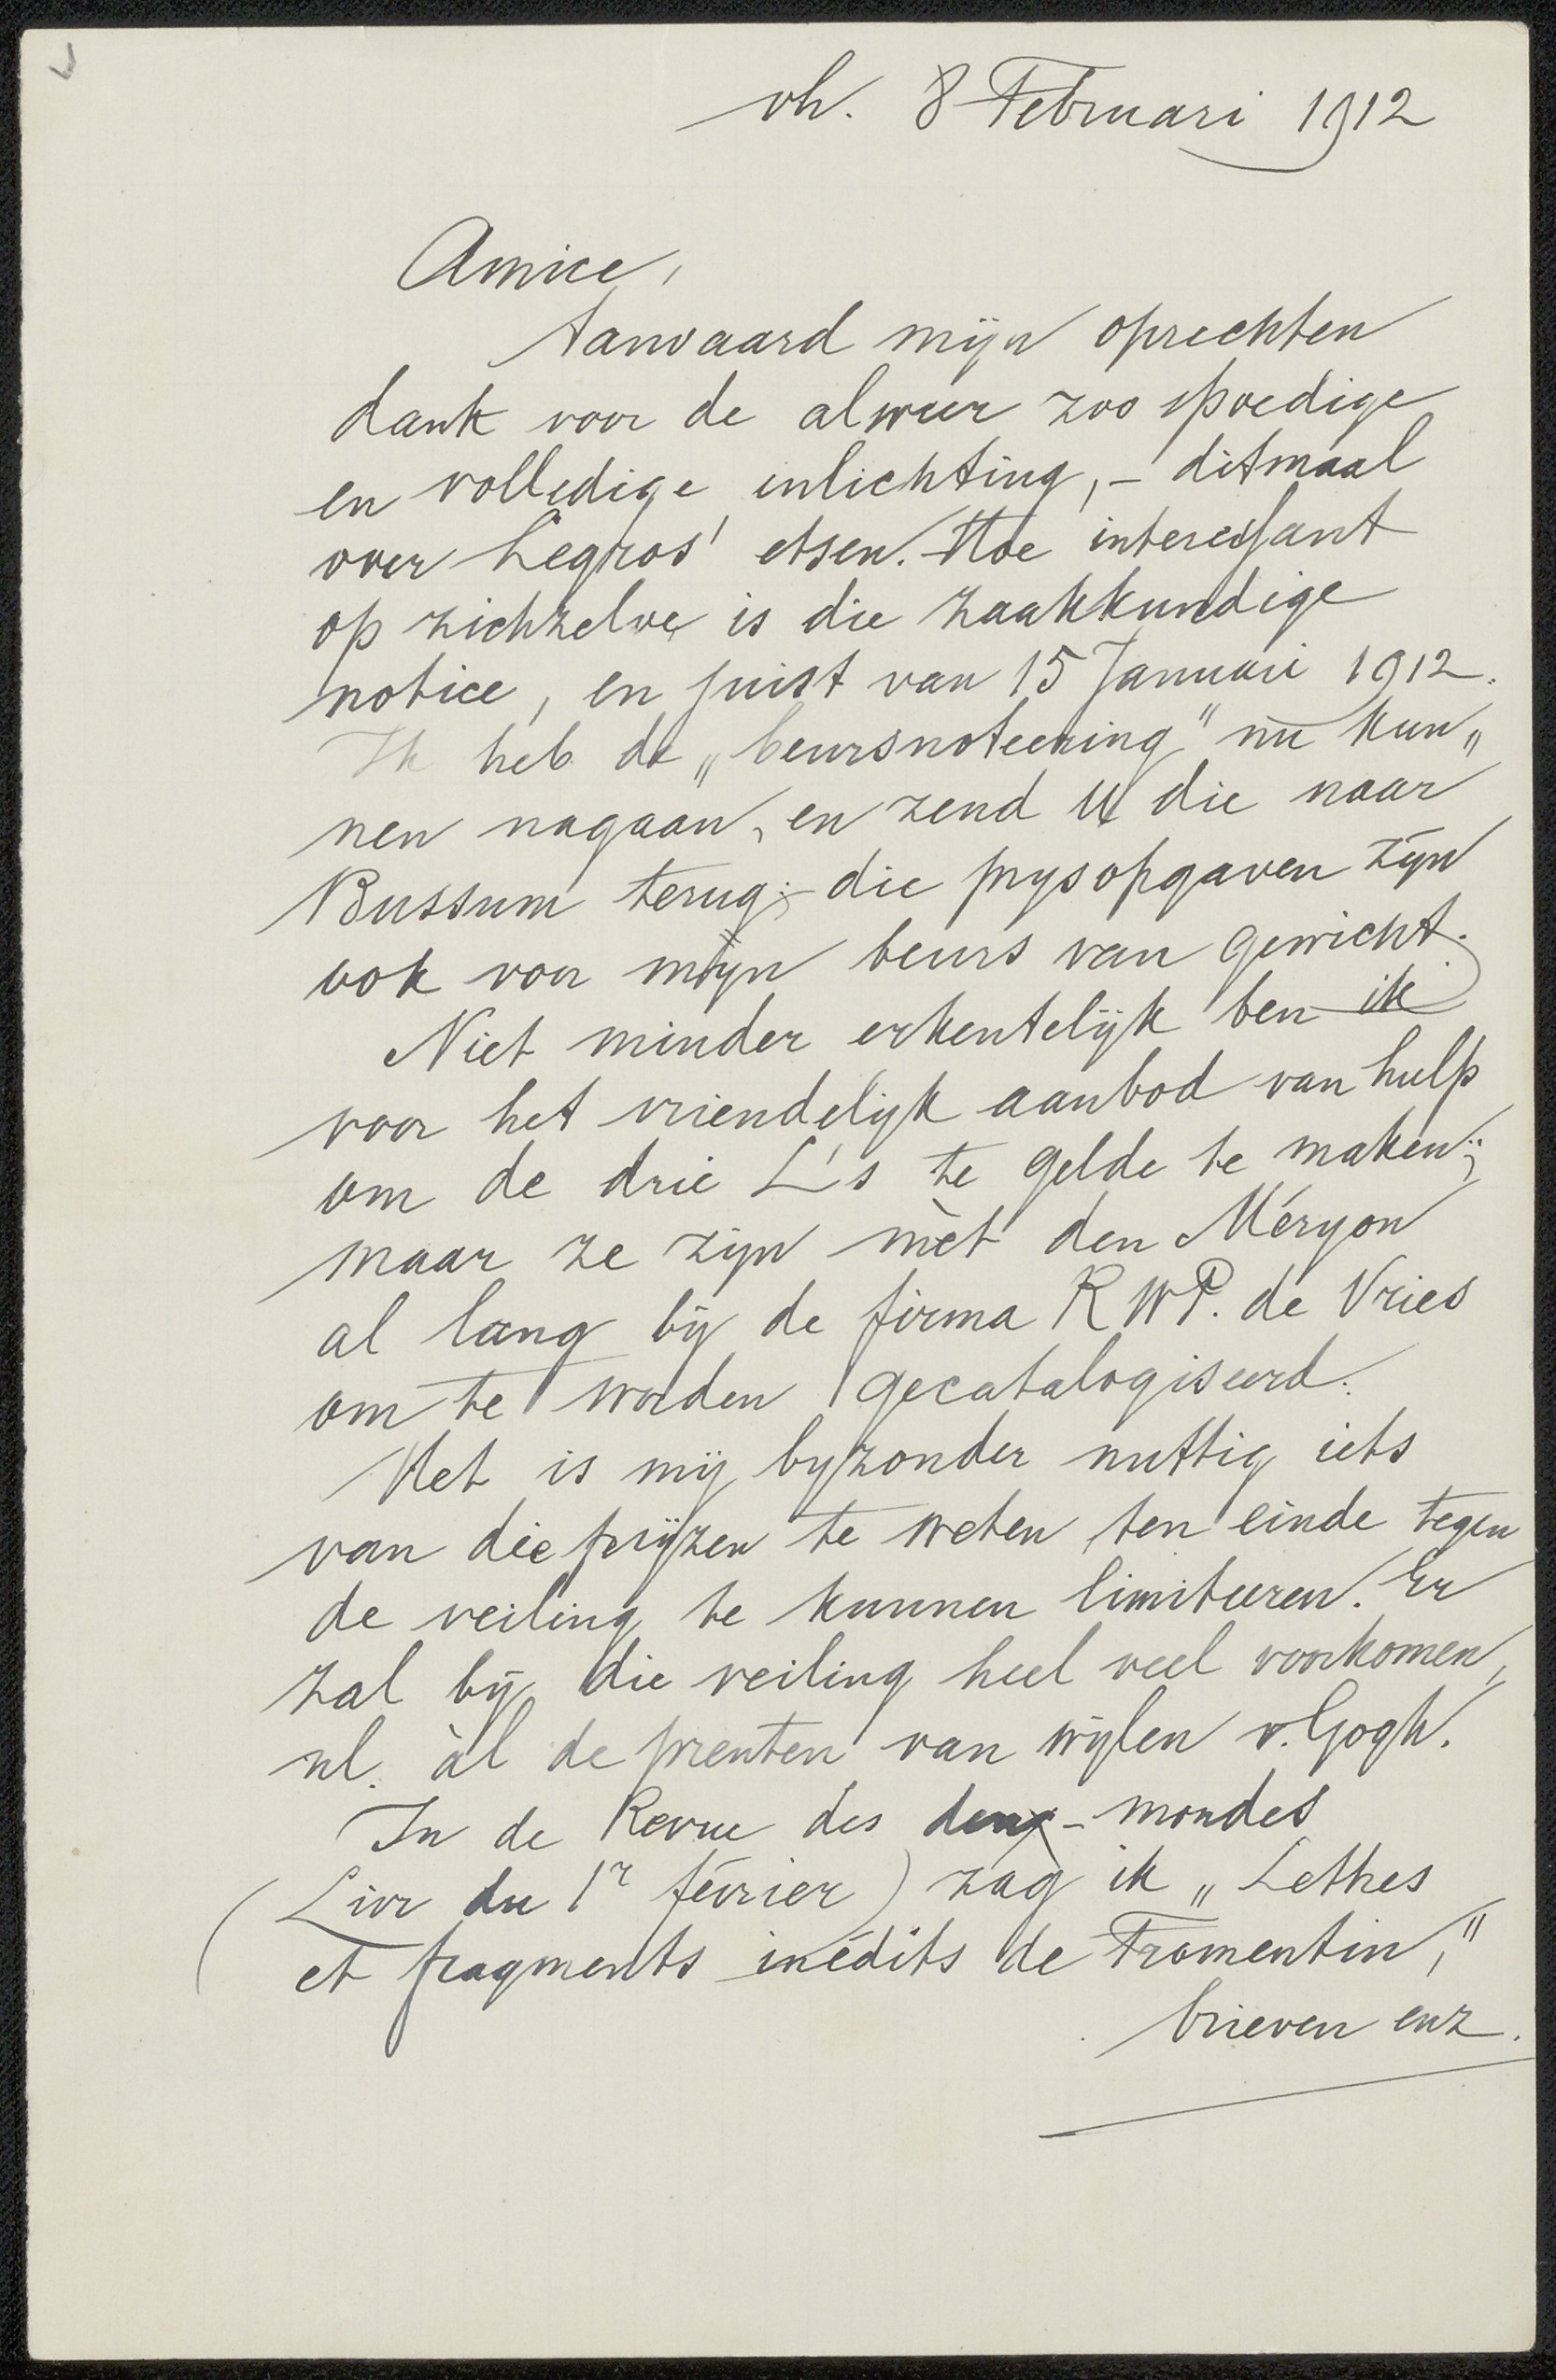 vh. 8 Februari 1912
Amice,
Aanvaard mijn oprechten
dank voor de alweer zoo spoedige
en volledige inlichting, - ditmaal
over Legros' etsen. Hoe interessant
op zichzelve is die zaakkundige
notice, en juist van 15 Januari 1912.
Ik heb de „beursnoteering" nu kun„
nen nagaan, en zend U die naar
Bussum terug; - die prysopgaven zijn
ook voor mijn beurs van gewicht.
Niet minder erkentelijk ben ik
voor het vriendelijk aanbod van hulp
om de drie L's te gelde te maken;
maar ze zijn mèt den Méryon
al lang bij de firma R W P. de Vries
om te worden gecatalogiseerd.
Het is mij byzonder nuttig iets
van die prijzen te weten ten einde tegen
de veiling te kunnen limiteeren. Er
zal bij die veiling heel veel voorkomen,
nl. àl de prenten van wijlen v. Gogh.
In de Revue des deux - mondes
(Livr du 1r février) zag ik „Lettres
et fragments inédits de Fromentin,"
brieven enz.